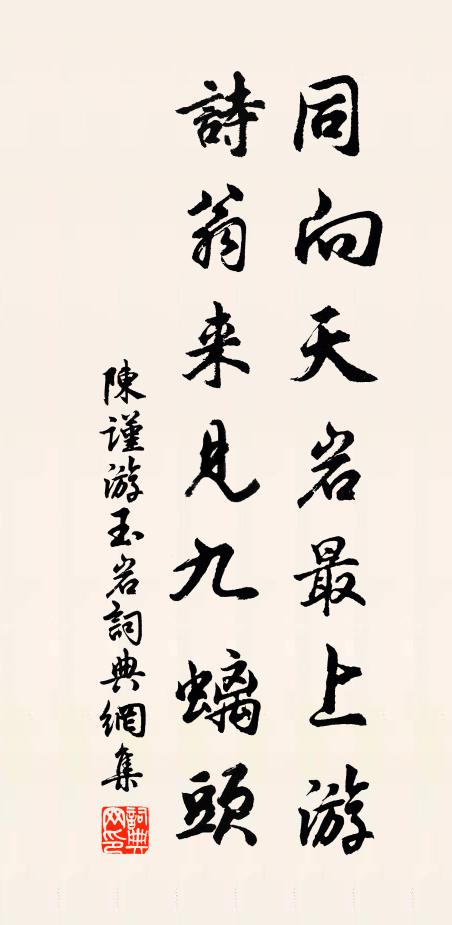 同向天岩最上游
詩翁来見九螭頭
陳謹游玉岩詞典網集
詞典网印